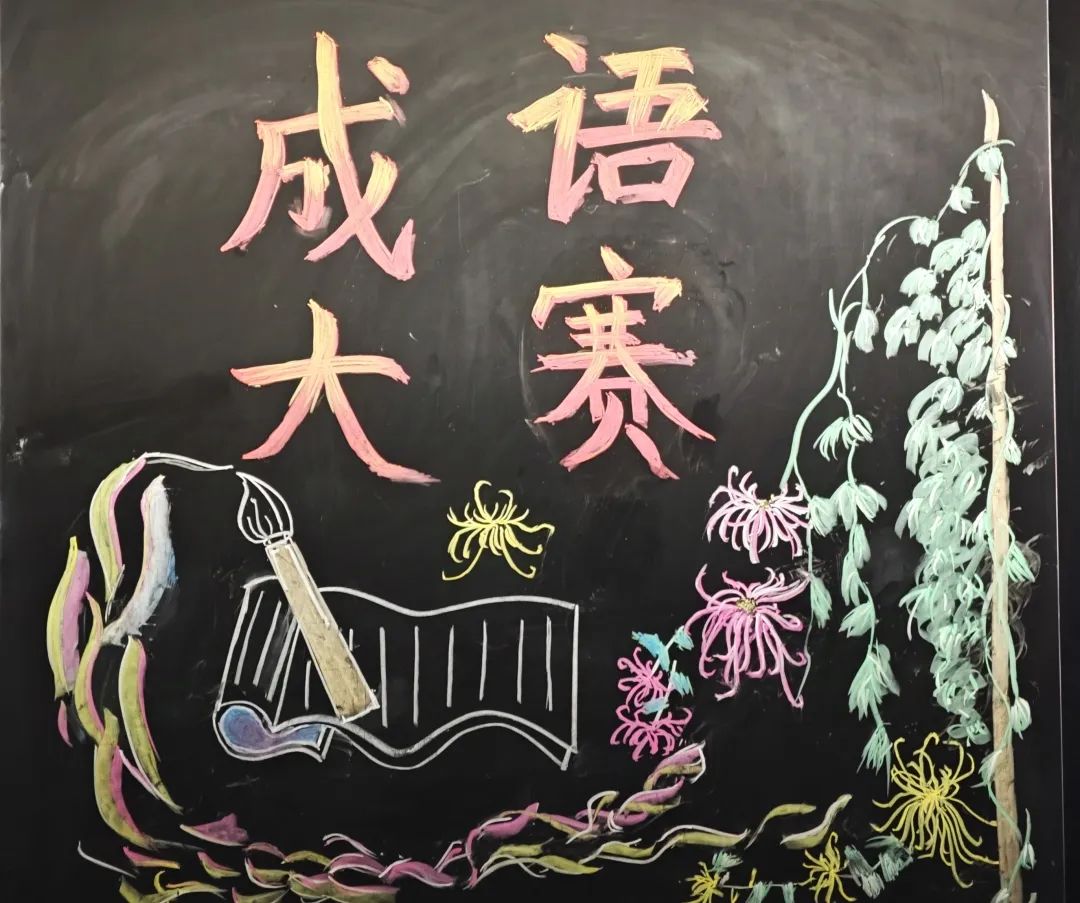 成语
大赛